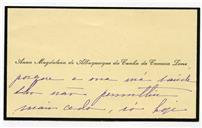 Anna Magdalena de Albuquerque da Cunha de Camara Lima
porque a sua má saude
lho não permittiu
mais cedo, só hoje